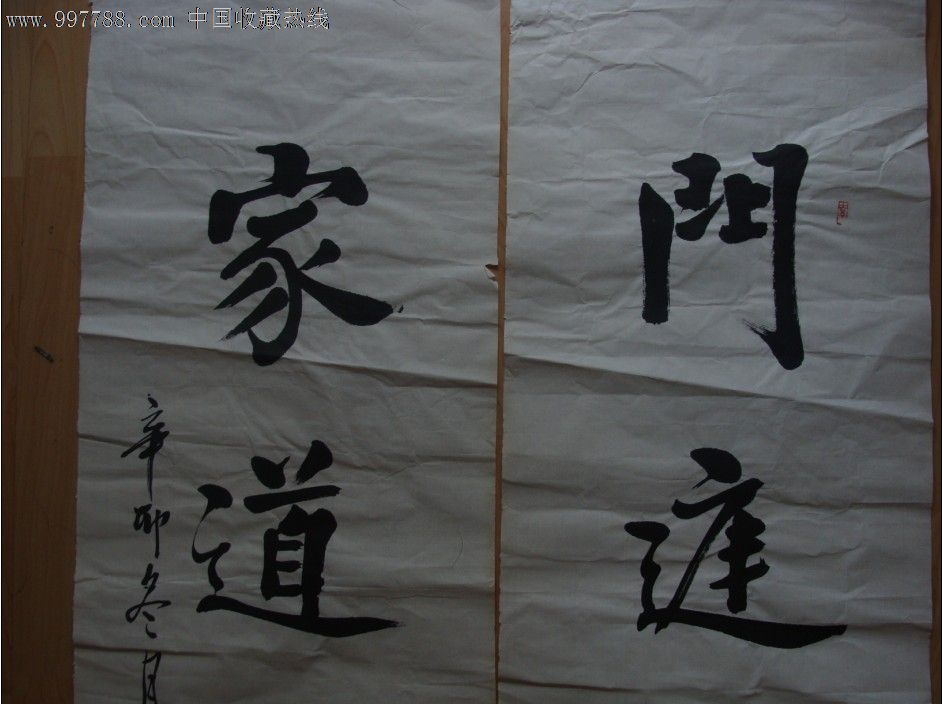 www.997788.com 中国收藏热线
門庭
家道
辛卯冬月